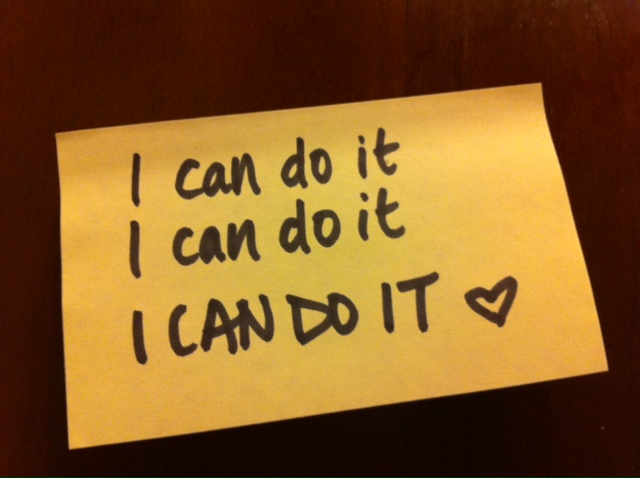 I can do it
I can do it
I CAN DO IT ♡